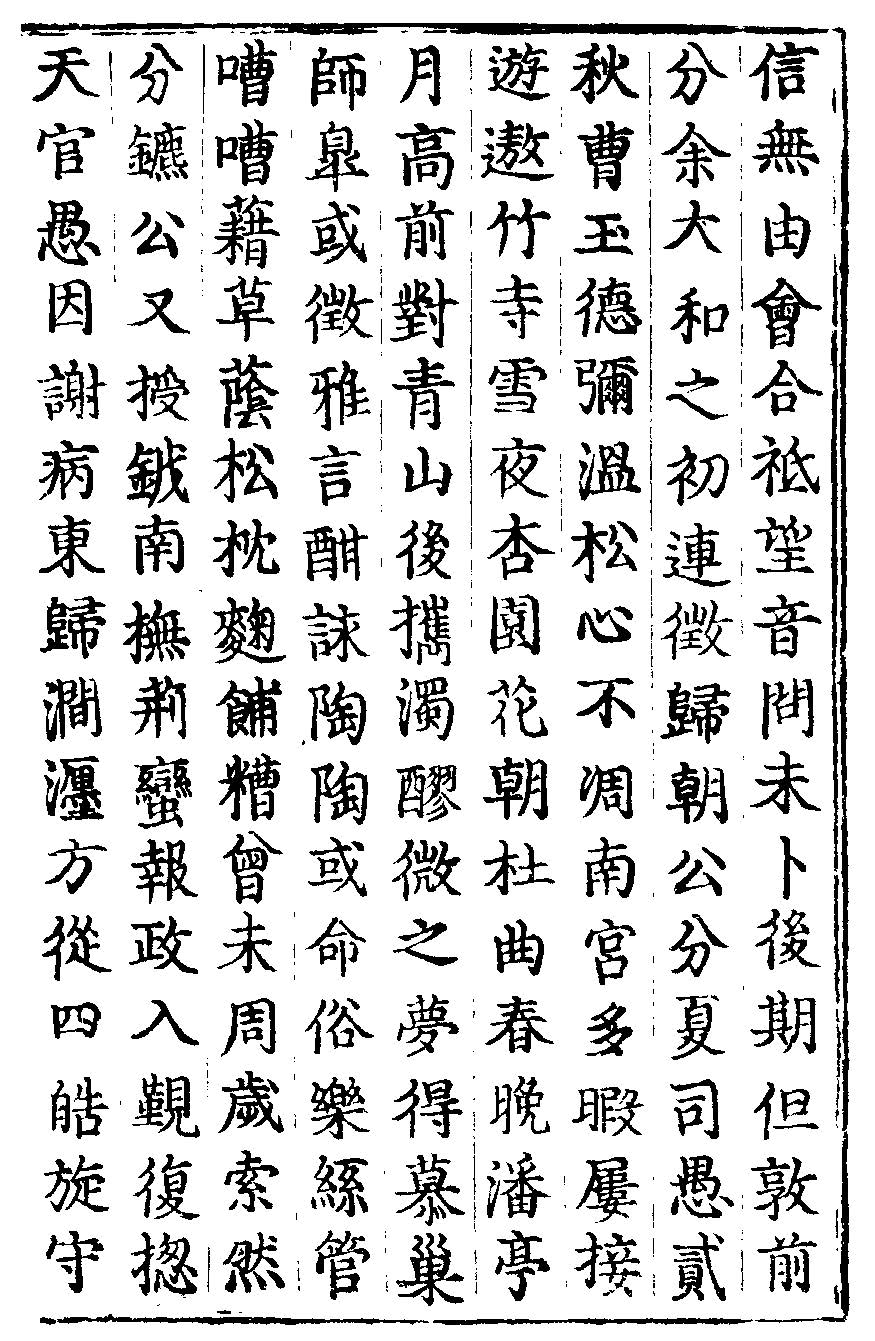 信無由會合祗望音問未卜後期但敦前
分余大和之初連徵歸朝公分夏司愚貳
秋曹玉德彌溫松心不凋南宮多暇屢接
遊遨竹寺雪夜杏園花朝杜曲春晚潘亭
月高前對青山後攜濁醪微之夢得慕巢
師皐或徵雅言酣詠陶陶或命俗樂絲管
嘈嘈藉草蔭松枕麴餔糟曾未周歲索然
分鑣公又授鉞南撫荊蠻報政入覲復揔
天官愚因謝病東歸澗瀍方從四皓旋守